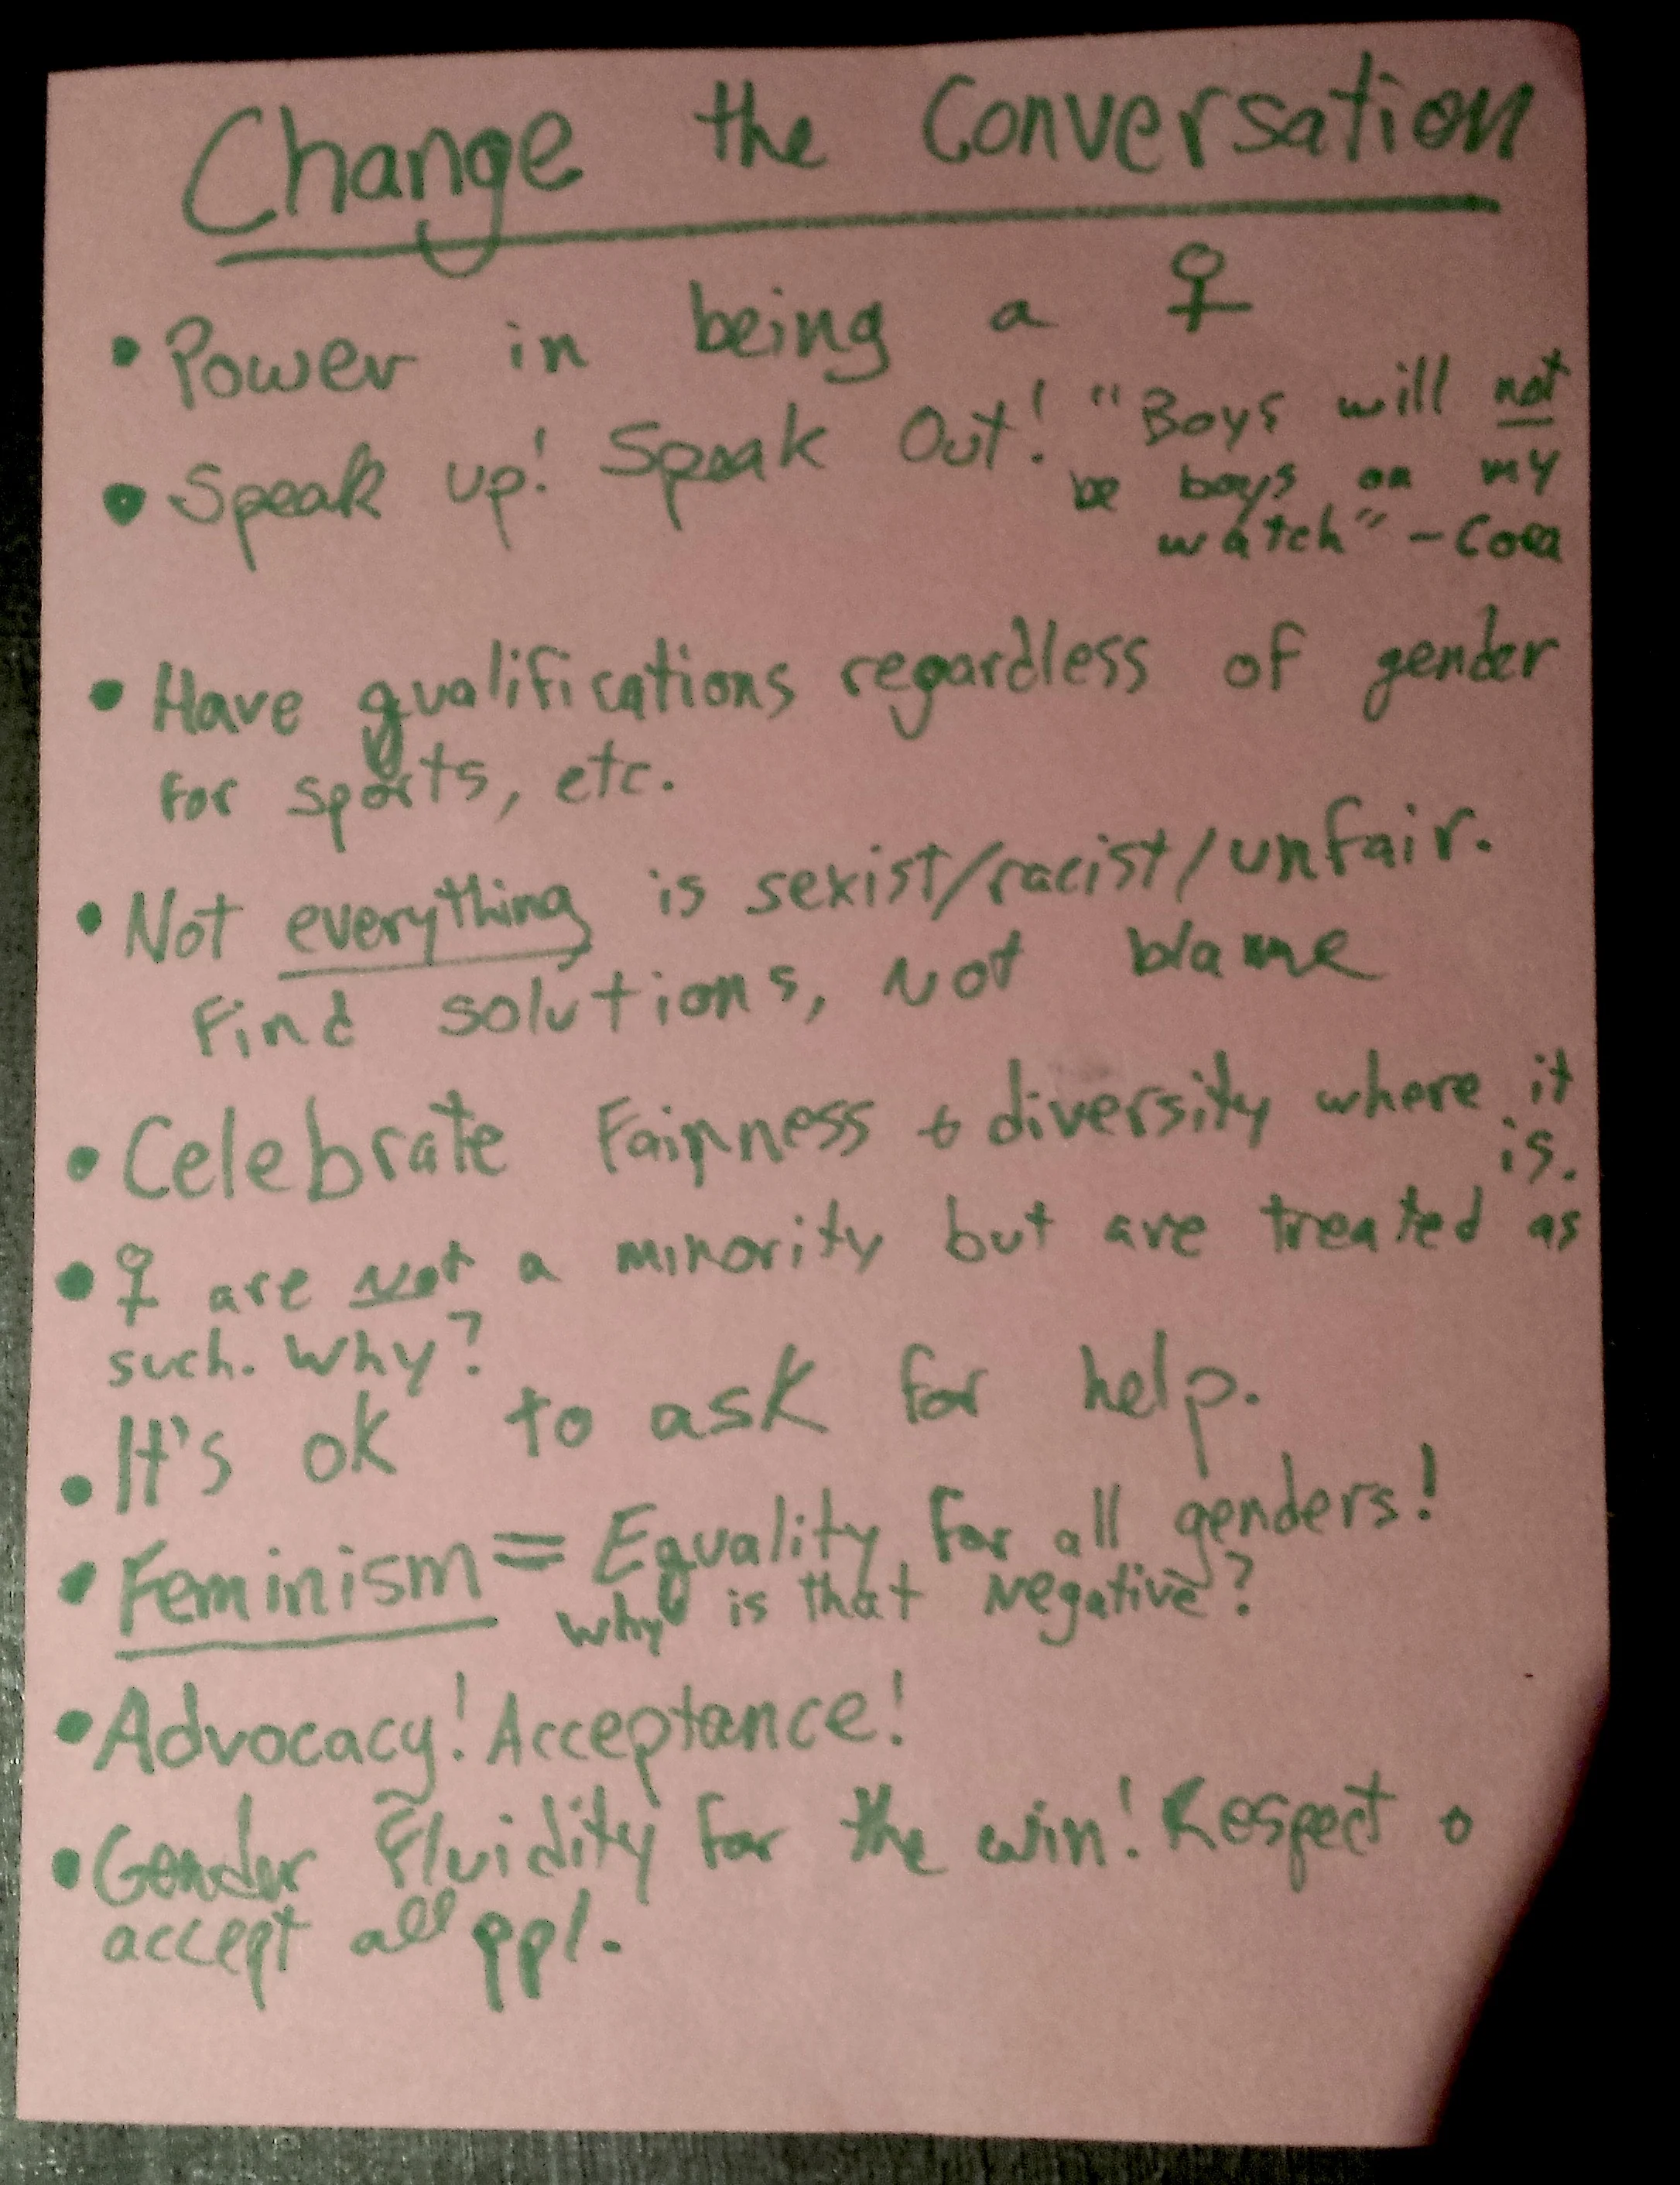 Change the Conversation
• Power in being a ♀
• Speak up! Speak Out! "Boys will not
be boys on my
watch" - Cora
• Have qualifications regardless of gender
for sports, etc.
• Not everything is sexist/racist/unfair.
Find solutions, not blame
• Celebrate Fairness + diversity where it
is.
• ♀ are not a minority but are treated as
such. Why?
• It's ok to ask for help.
• Feminism = Equality for all genders!
why is that negative?
• Advocacy! Acceptance!
• Gender Fluidity for the win! Respect +
accept all ppl.